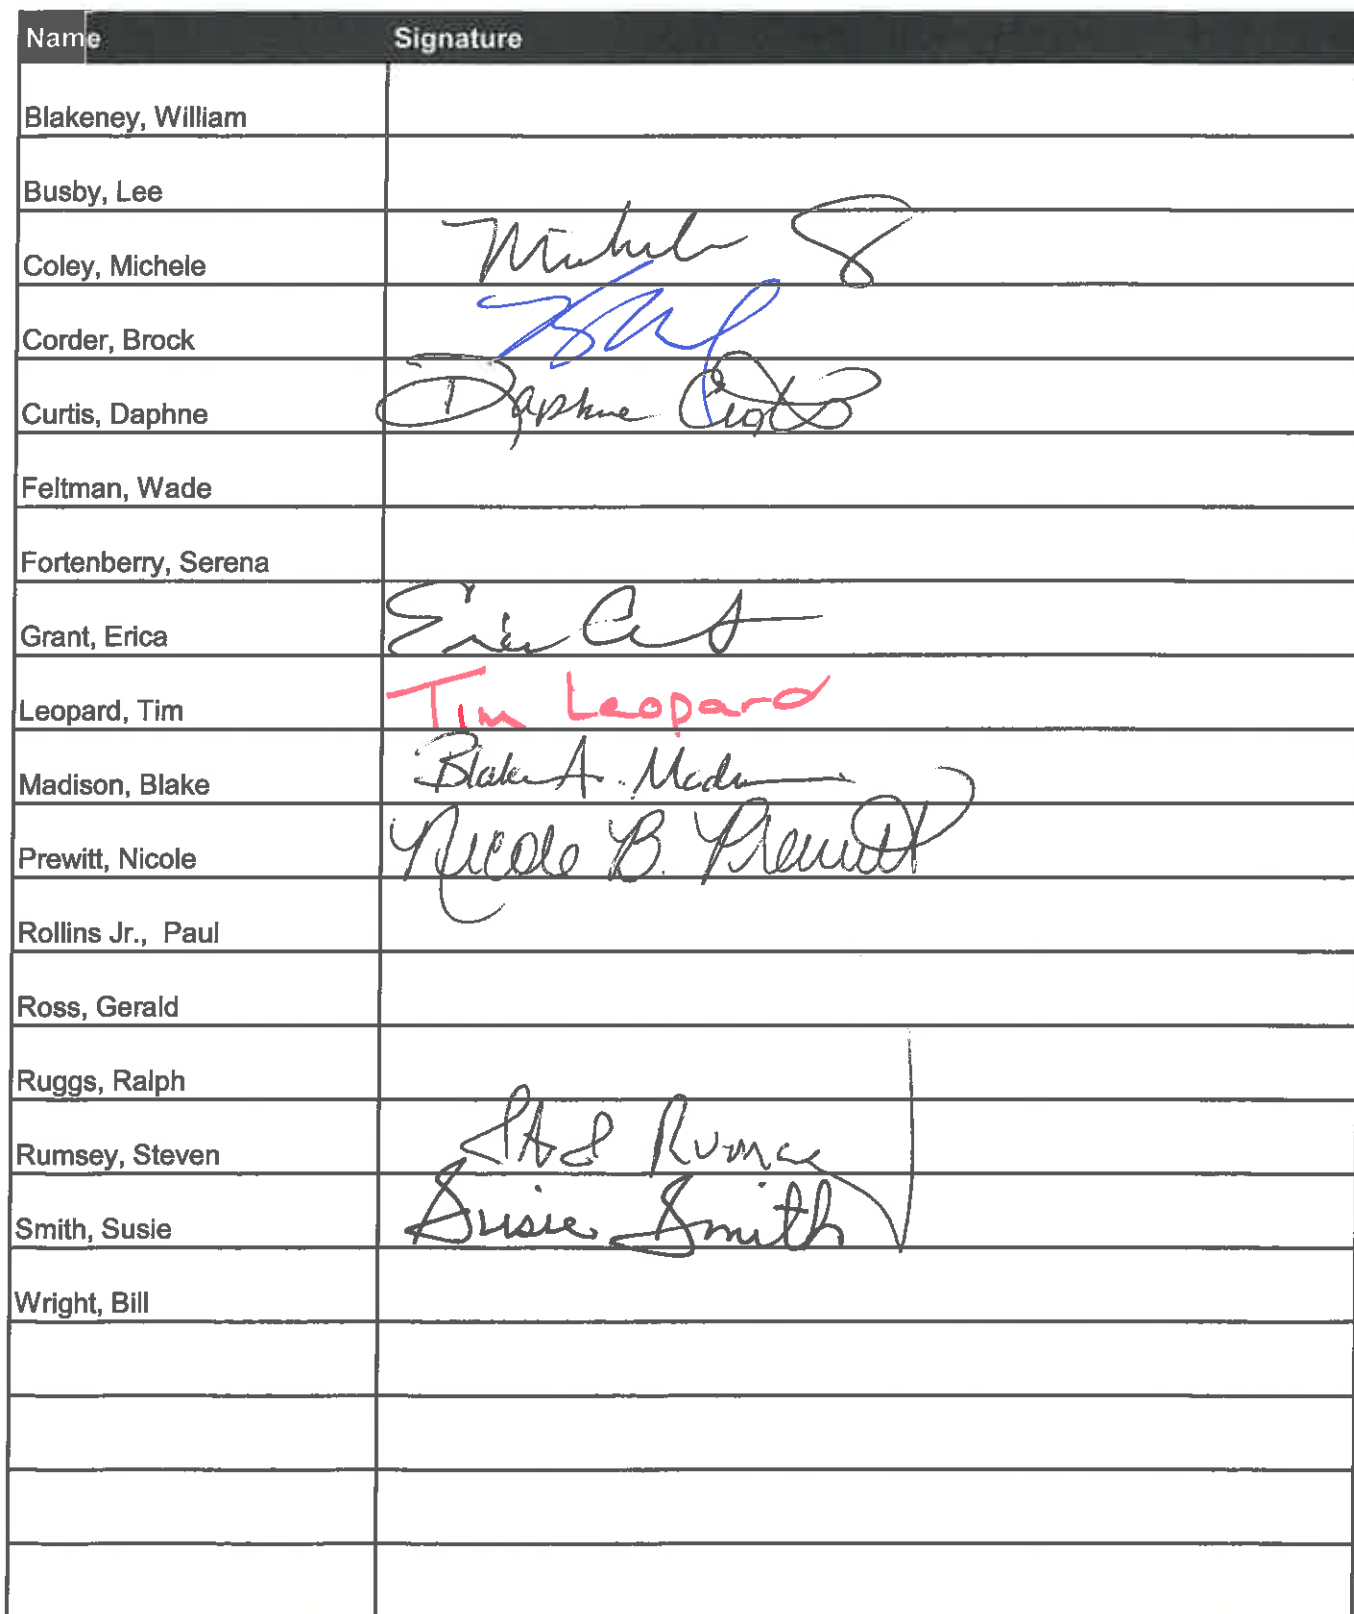 Name Signature
Blakeney, William
Busby, Lee
Coley, Michele Michele
Corder, Brock
Curtis, Daphne Daphne Curtis
Feltman, Wade
Fortenberry, Serena
Grant, Erica Erica Grant
Leopard, Tim Tim Leopard
Madison, Blake Blake A. Madison
Prewitt, Nicole Nicole B. Prewitt
Rollins Jr., Paul
Ross, Gerald
Ruggs, Ralph
Rumsey, Steven Rumsey
Smith, Susie Susie Smith
Wright, Bill